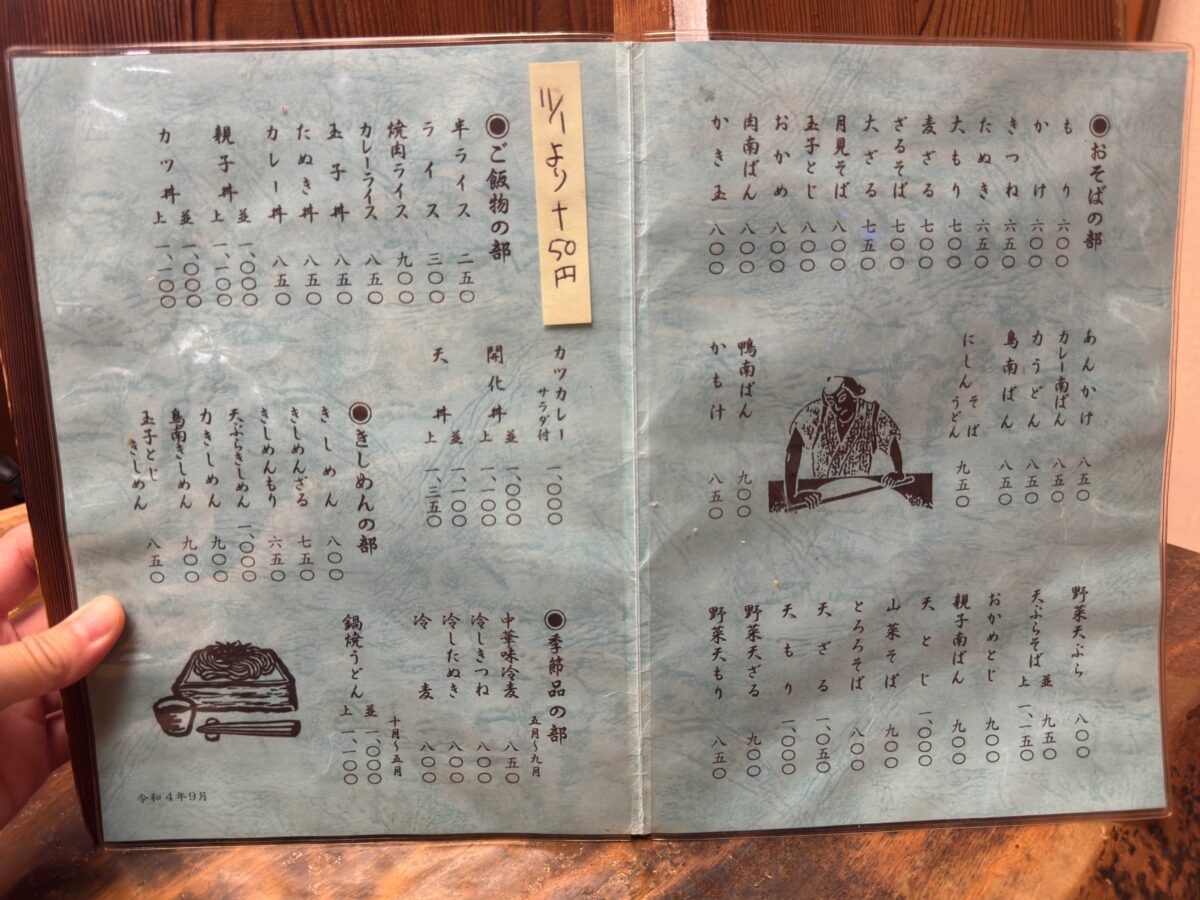 ◉おそばの部
もり 六〇〇
かけ 六〇〇
きつね 六五〇
たぬき 六五〇
大もり 七〇〇
麦ざる 七〇〇
ざるそば 七〇〇
大ざる 七五〇
月見そば 八〇〇
玉子とじ 八〇〇
おかめ 八〇〇
肉南ばん 八〇〇
かき玉 八〇〇
あんかけ 八五〇
カレー南ばん 八五〇
力うどん 八五〇
鳥南ばん 八五〇
にしんそば
うどん 九五〇
鴨南ばん 九〇〇
かも汁 八五〇
野菜天ぷら 八〇〇
天ぷらそば 並 九五〇
上 一、一五〇
おかめとじ 九〇〇
親子南ばん 九〇〇
天とじ 一、〇〇〇
山菜そば 九〇〇
とろろそば 八〇〇
天ざる 一、〇五〇
天もり 一、〇〇〇
野菜天ざる 九〇〇
野菜天もり 八五〇
11/1より+50円
◉ご飯物の部
半ライス 二五〇
ライス 三〇〇
焼肉ライス 九〇〇
カレーライス 八五〇
玉子丼 八五〇
たぬき丼 八五〇
カレー丼 八五〇
親子丼 並 一、〇〇〇
上 一、一〇〇
カツ丼 並 一、〇〇〇
上 一、一〇〇
カツカレー サラダ付 一、〇〇〇
開化丼 並 一、〇〇〇
上 一、一〇〇
天丼 並 一、一〇〇
上 一、三五〇
◉きしめんの部
きしめん 八〇〇
きしめんざる 七五〇
きしめんもり 六五〇
天ぷらきしめん 一、〇〇〇
力きしめん 九〇〇
鳥南きしめん 九〇〇
玉子とじきしめん 八五〇
◉季節品の部
五月〜九月
中華味冷麦 八五〇
冷しきつね 八〇〇
冷したぬき 八〇〇
冷麦 八〇〇
十月〜五月
鍋焼うどん 並 一、〇〇〇
上 一、一〇〇
令和4年9月